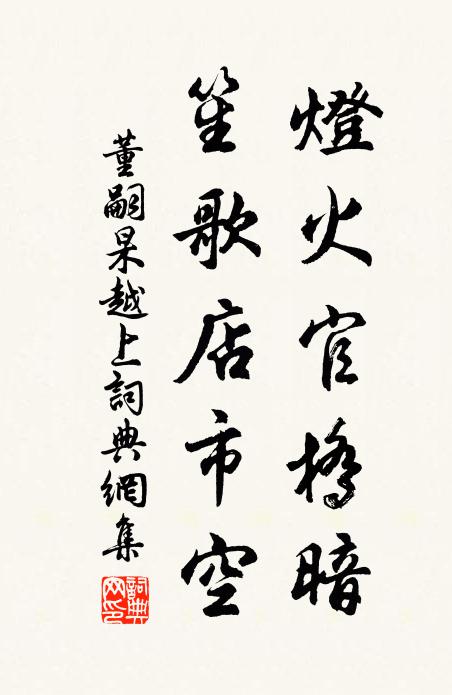 燈火官橋暗
笙歌店市空
董嗣杲越上詞典網集
詞典網印